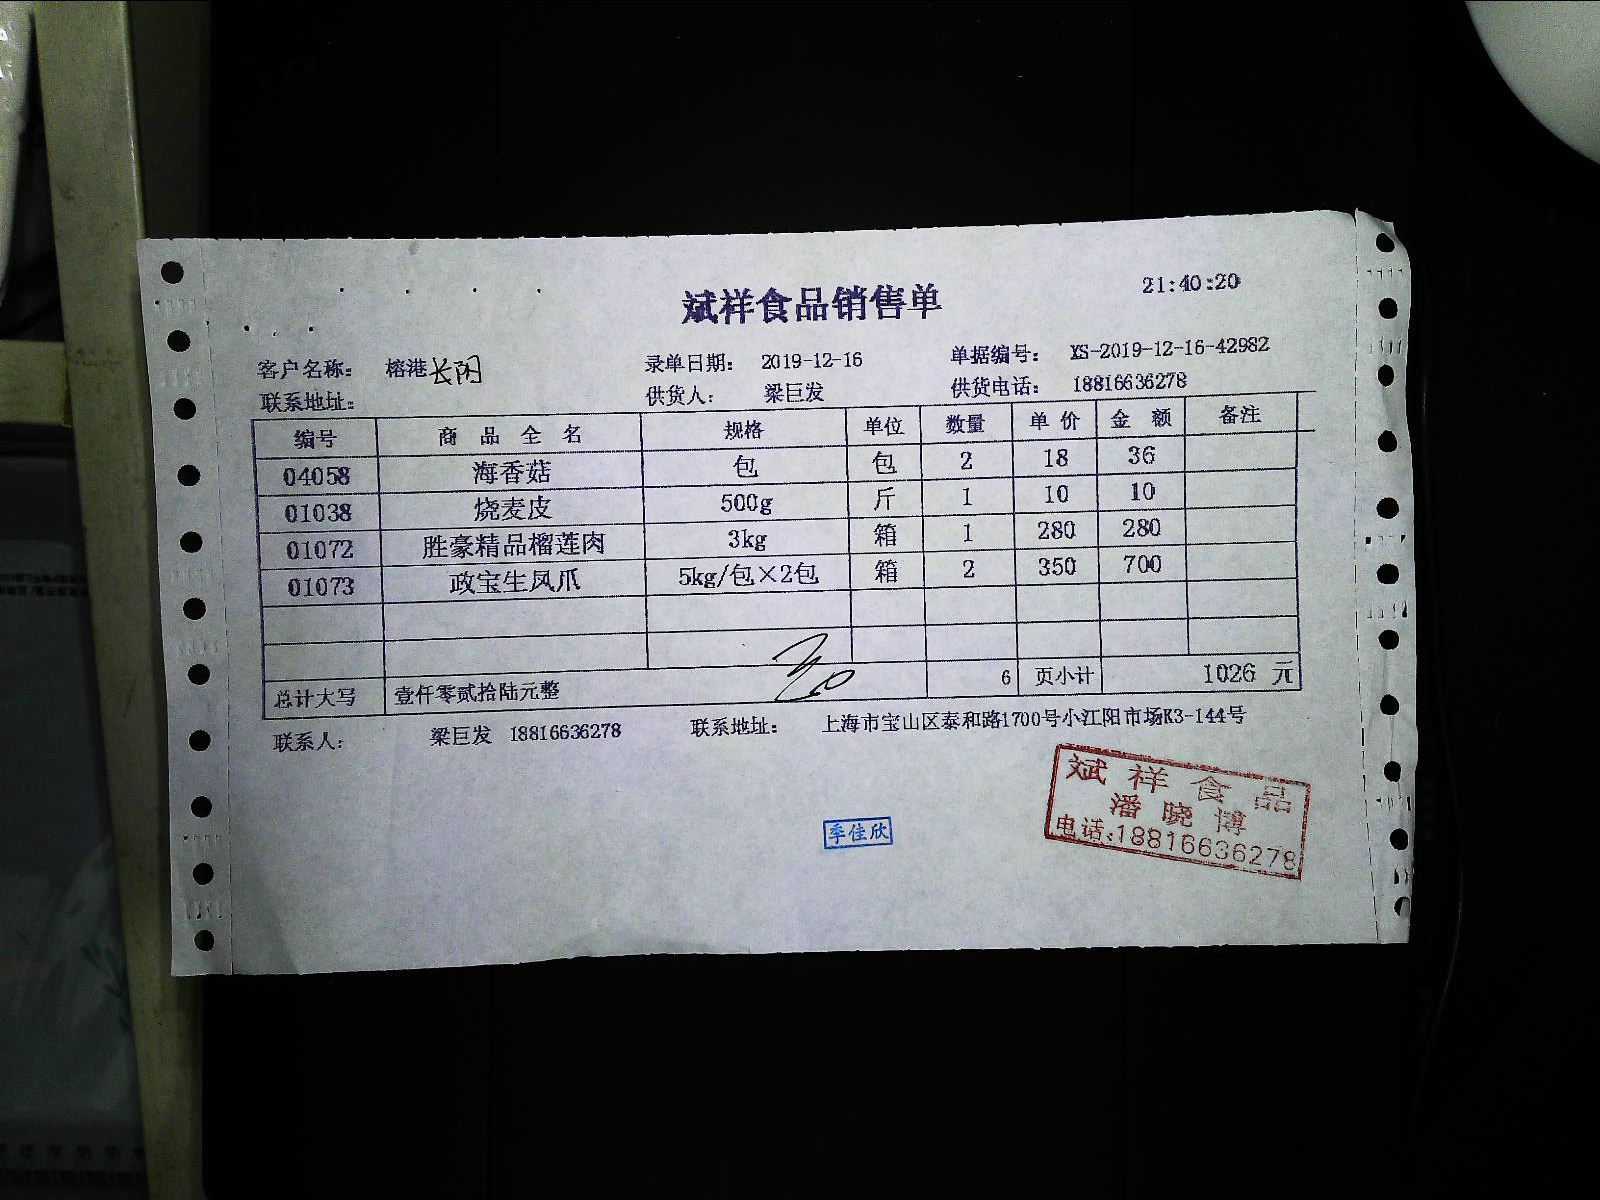 斌祥食品销售单
21:40:20
客户名称: 榕港长阳 录单日期: 2019-12-16 单据编号: XS-2019-12-16-42982
联系地址: 供货人: 梁巨发 供货电话: 18816636278
编号 商品全名 规格 单位 数量 单价 金额 备注
04058 海香菇 包 包 2 18 36
01038 烧麦皮 500g 斤 1 10 10
01072 胜豪精品榴莲肉 3kg 箱 1 280 280
01073 政宝生凤爪 5kg/包×2包 箱 2 350 700
总计大写 壹仟零贰拾陆元整 6 页小计 1026 元
联系人: 梁巨发 18816636278 联系地址: 上海市宝山区泰和路1700号小江阳市场K3-144号
斌祥食品
潘晓博
电话:18816636278
季佳欣